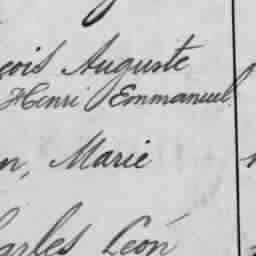 çois Auguste
Henri Emmanuel.
n, Marie
harles Léon